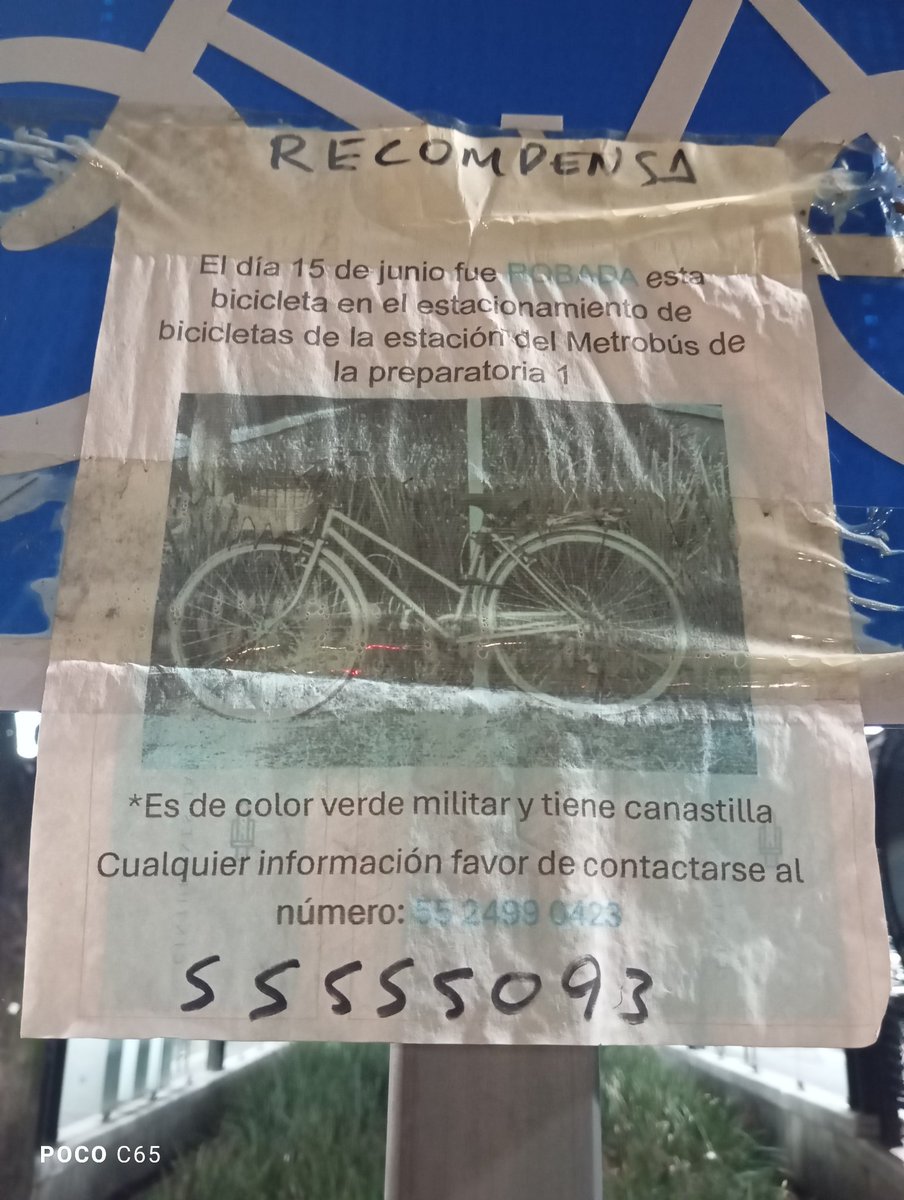 RECOMPENSA
El día 15 de junio fue ROBADA esta
bicicleta en el estacionamiento de
bicicletas de la estación del Metrobús de
la preparatoria 1
*Es de color verde militar y tiene canastilla
Cualquier información favor de contactarse al
número: 55 2499 0423
55555093
POCO C65